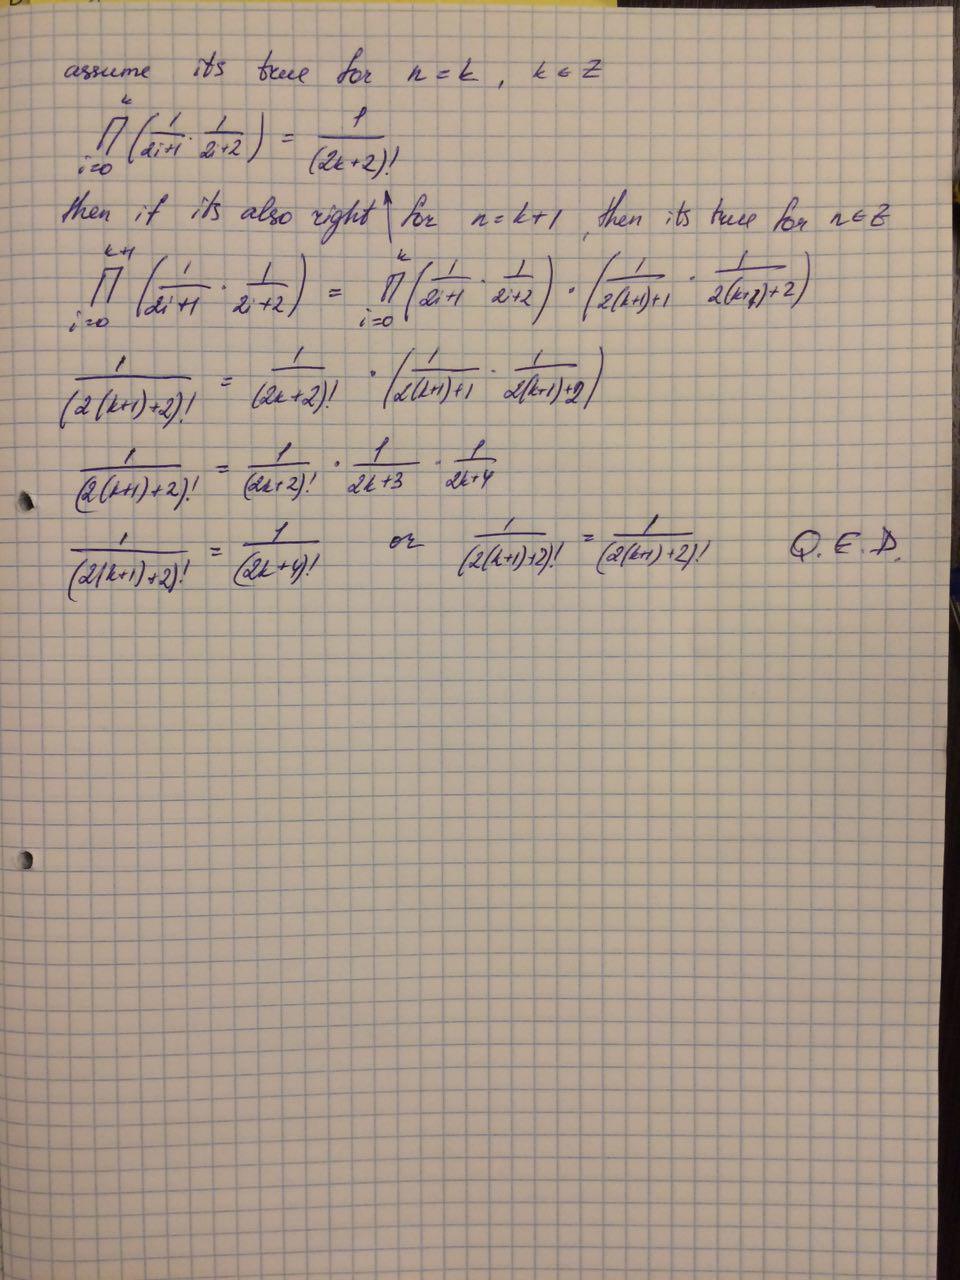 assume its true for n = k, k ∈ Z
∏_{i=0}^{k} (1/(2i+1) · 1/(2i+2)) = 1/(2k+2)!
then if its also right for n = k+1, then its true for n ∈ Z
∏_{i=0}^{k+1} (1/(2i+1) · 1/(2i+2)) = ∏_{i=0}^{k} (1/(2i+1) · 1/(2i+2)) · (1/(2(k+1)+1) · 1/(2(k+1)+2))
1/(2(k+1)+2)! = 1/(2k+2)! · (1/(2(k+1)+1) · 1/(2(k+1)+2))
1/(2(k+1)+2)! = 1/(2k+2)! · 1/(2k+3) · 1/(2k+4)
1/(2(k+1)+2)! = 1/(2k+4)! or 1/(2(k+1)+2)! = 1/(2(k+1)+2)! Q.E.D.